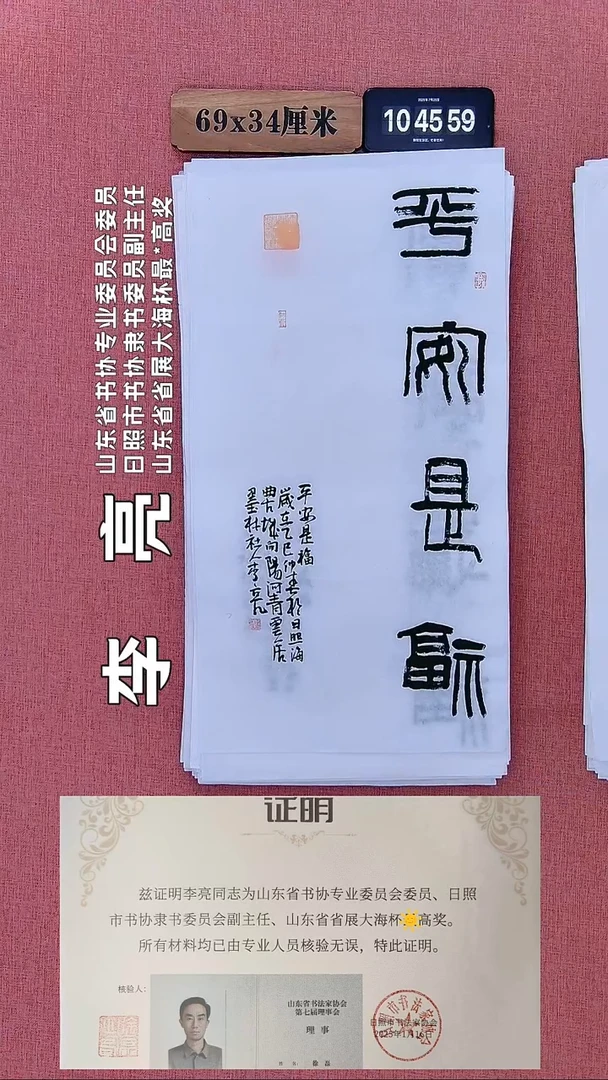 69x34厘米
10 45 59
山东省书协专业委员会委员
日照市书协隶书委员副主任
山东省省展大海杯最*高奖
李亮
平安是福
平安是福
岁在乙巳仲春於日照海
曲城向阳河青云居
墨林社人李亮
证明
兹证明李亮同志为山东省书协专业委员会委员、日照
市书协隶书委员会副主任、山东省省展大海杯高奖。
所有材料均已由专业人员核验无误，特此证明。
核验人：
山东省书法家协会
第七届理事会
理 事
姓 名： 徐磊
日照市书法家协会
2025年1月16日